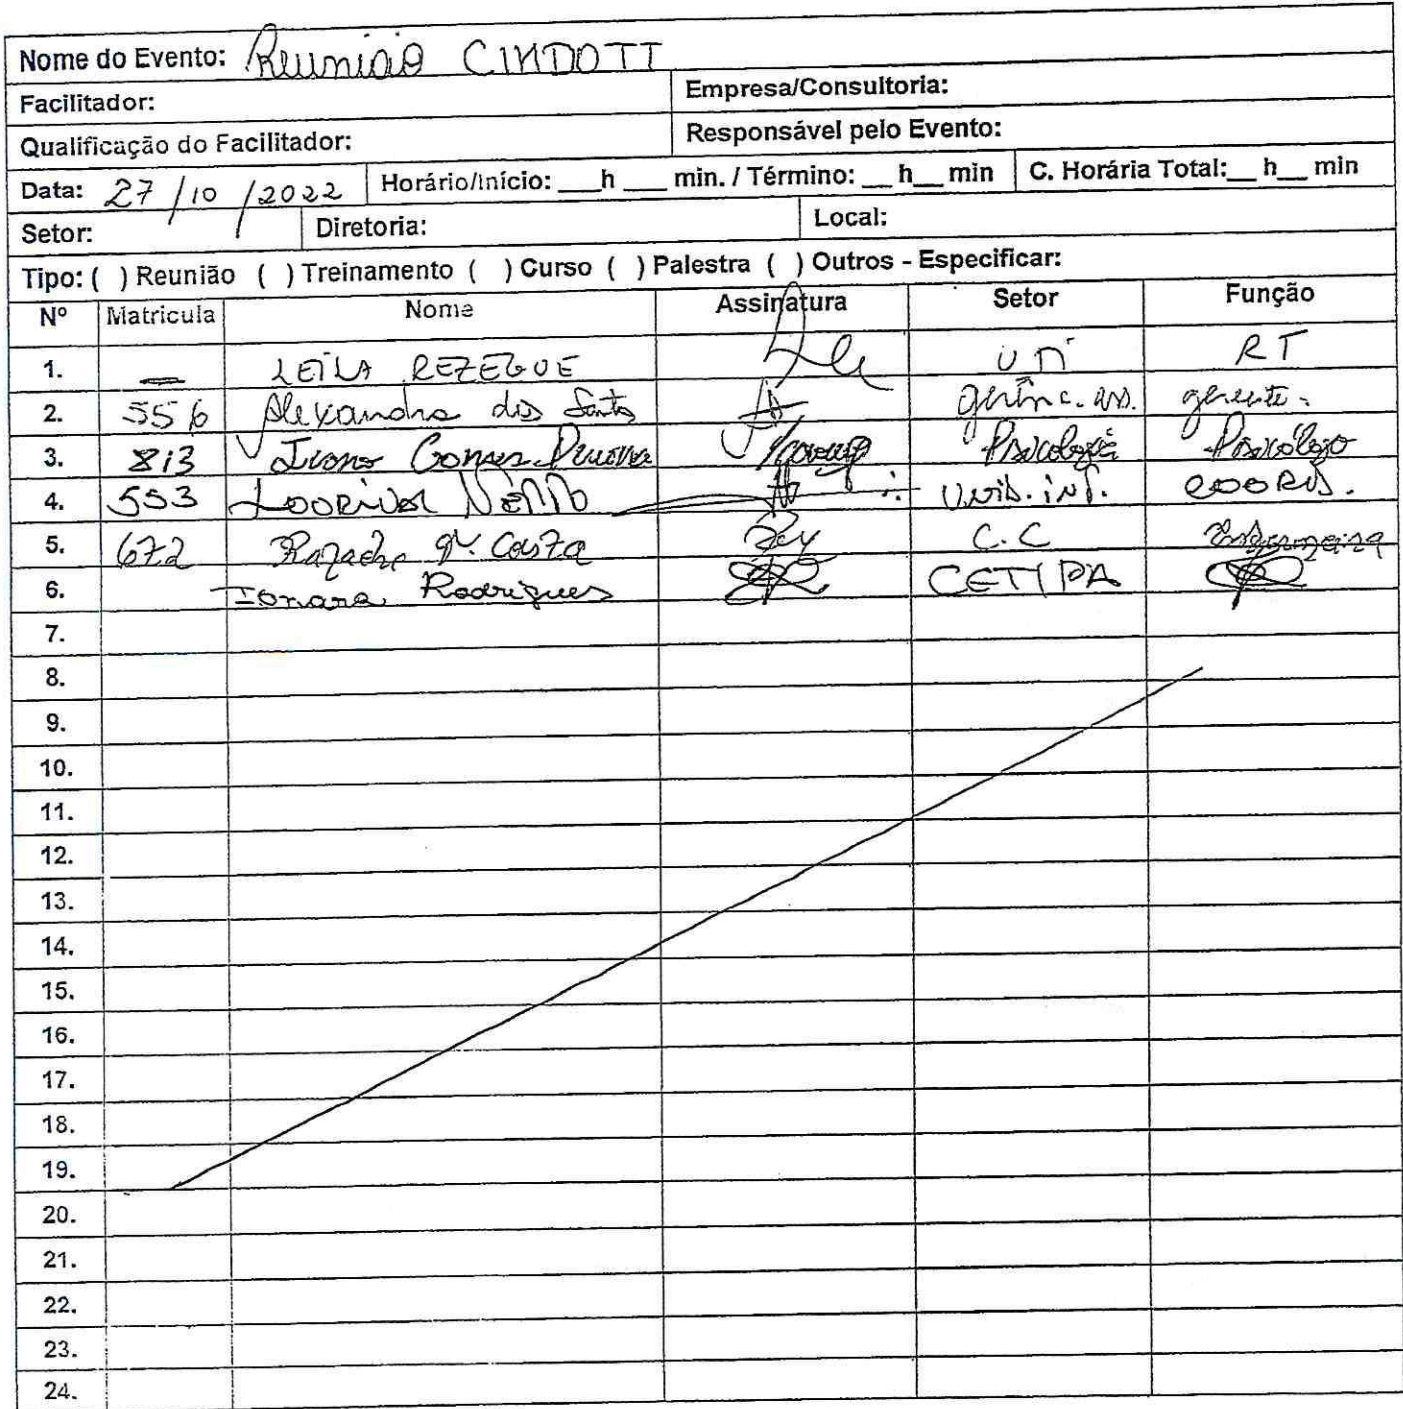 Nome do Evento: Reunião CIHDOTT
Facilitador: Empresa/Consultoria:
Qualificação do Facilitador: Responsável pelo Evento:
Data: 27/10/2022 Horário/Início: __h __ min. / Término: __ h__ min C. Horária Total:__ h__ min
Setor: Diretoria: Local:
Tipo: ( ) Reunião ( ) Treinamento ( ) Curso ( ) Palestra ( ) Outros - Especificar:
Nº Matricula Nome Assinatura Setor Função
1. — LEILA REZEGUE UTI RT
2. 556 Alexandra dos Santos gerênc. ass. gerente
3. 813 Gomes Psicologia Psicólogo
4. 553 LOURIVAL NETTO UNID. INT. COORD.
5. 672 Costa C.C Enfermeira
6. Ionara Rodrigues CETIPA
7.
8.
9.
10.
11.
12.
13.
14.
15.
16.
17.
18.
19.
20.
21.
22.
23.
24.